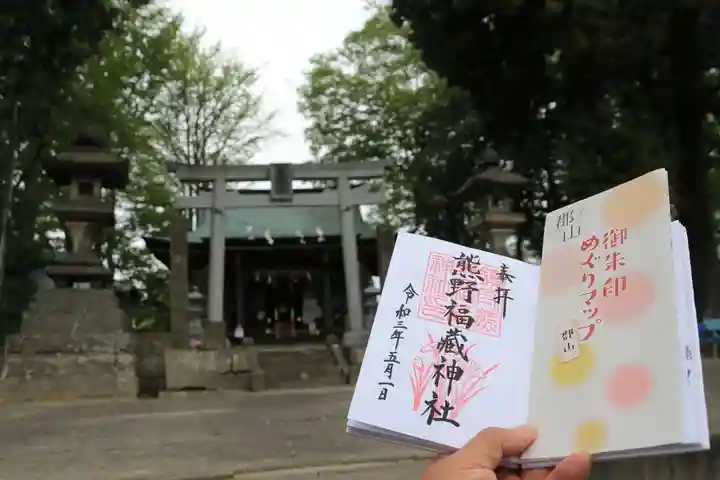 奉拝
熊野福蔵神社
令和三年五月一日
郡山
御朱印
めぐりマップ
郡山